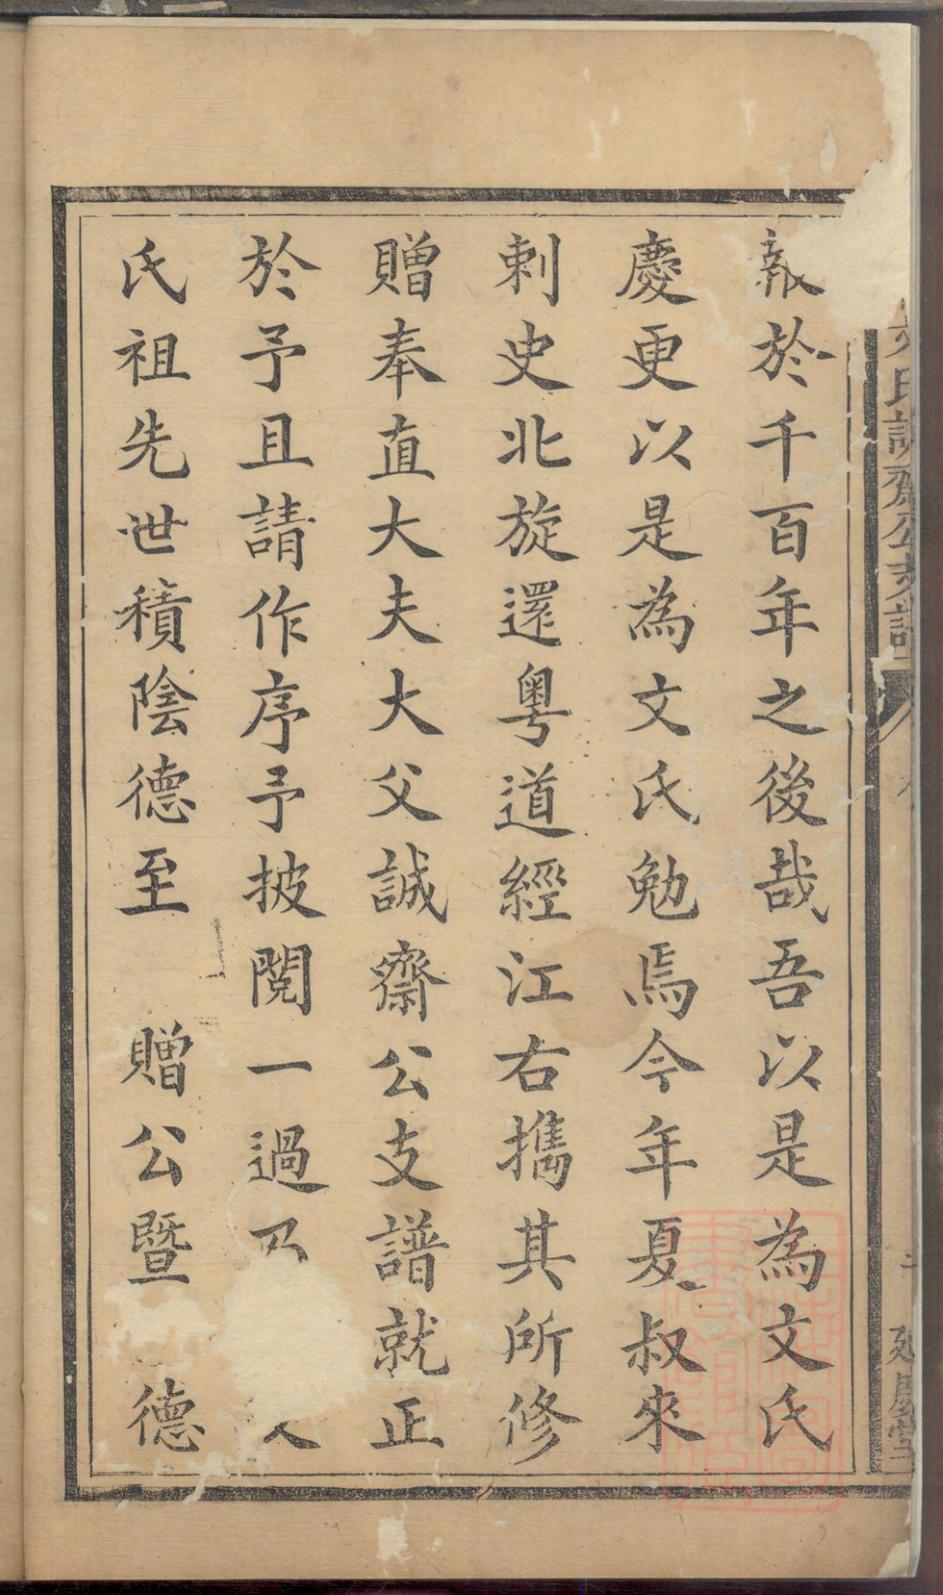 報於千百年之後哉吾以是為文氏
慶更以是為文氏勉焉今年夏叔來
刺史北旋還粵道經江右攜其所修
贈奉直大夫大父誠齋公支譜就正
於予且請作序予披閱一過乃
氏祖先世積陰德至　贈公暨　德
氏誠齋公支譜